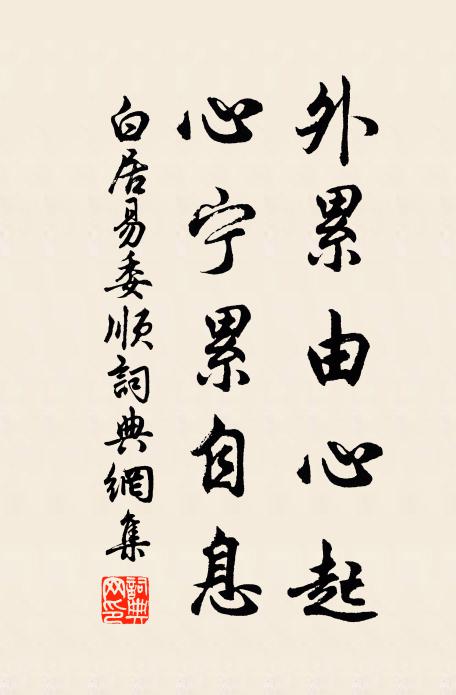 外累由心起
心宁累自息
白居易委顺詞典網集
詞典
网印